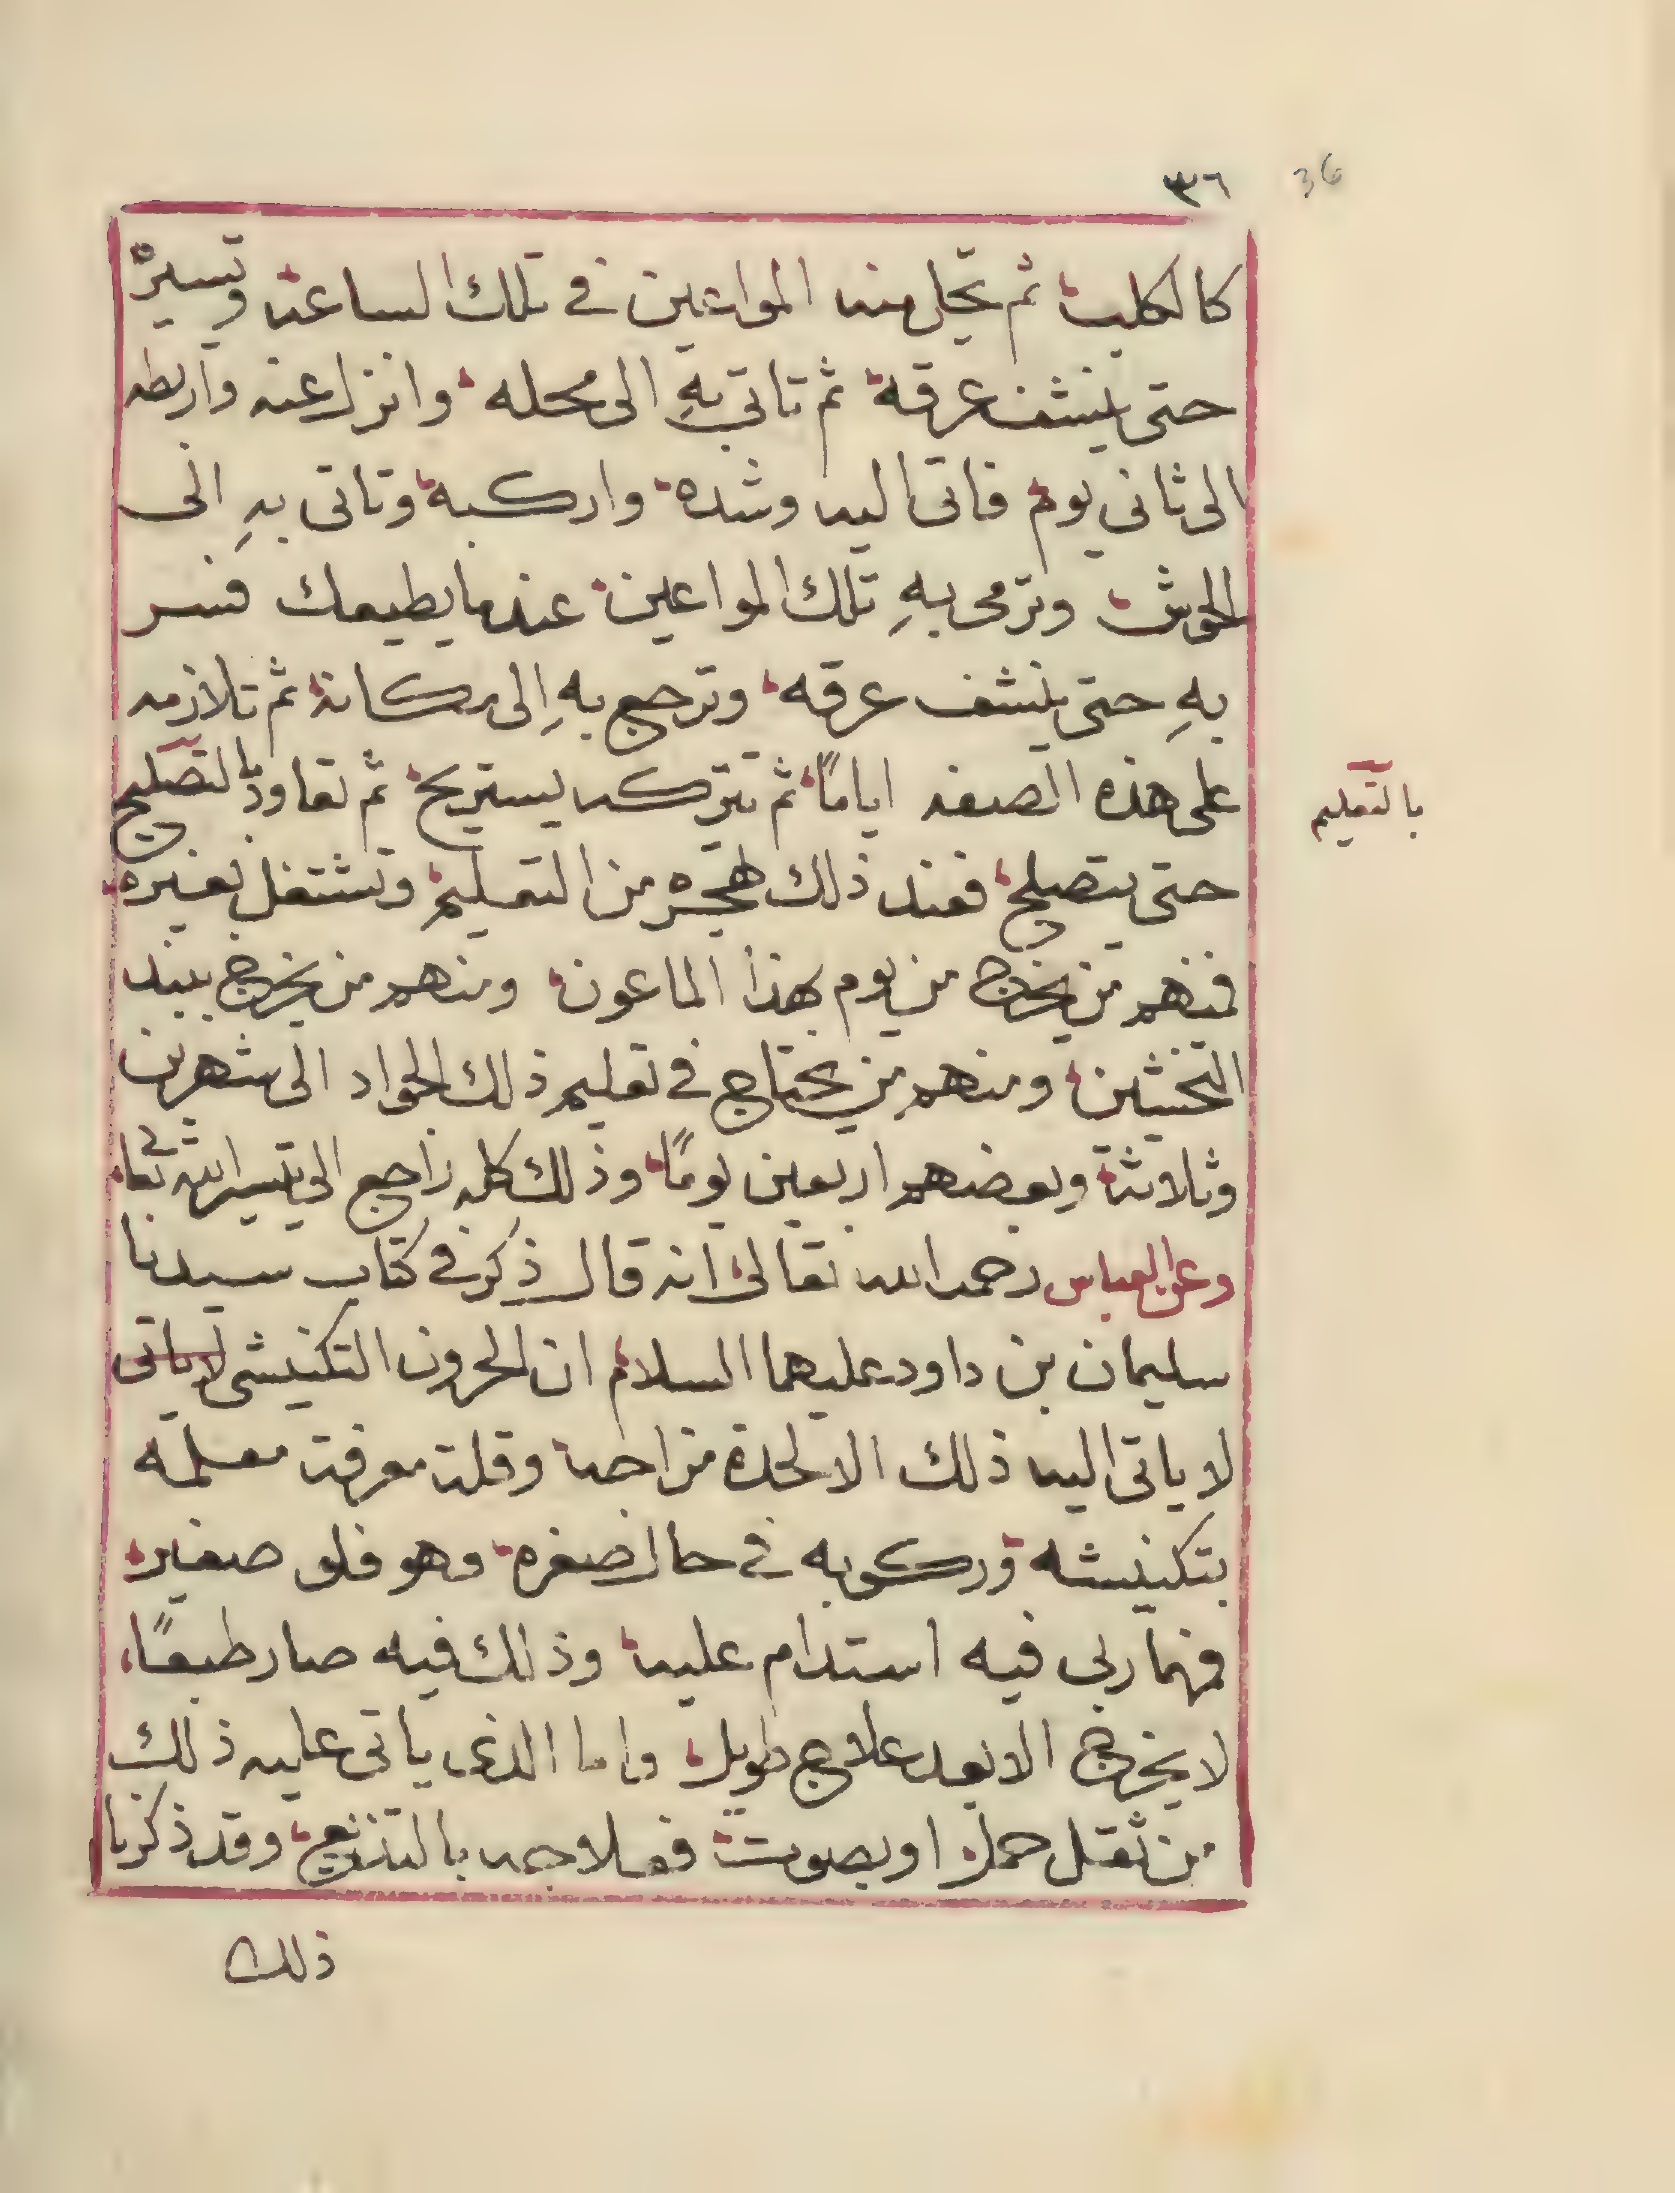 ٣٦ 36
كالكلب ثم تحل منه المواعين في تلك الساعة وتسيرّ
حتى ينشف عرقة ثم تاتي بهِ الى محله وانزل عنه واربطه
الى ثاني يوم فاتى اليه وشده واركبة وتاتى بهِ الى
الحوش وترمى بهِ تلك المواعين عندما يطيعك فسر
بهِ حتى ينشف عرقه وترجع بهِ إلى مكانة ثم تلازمه
على هذه الصفه اياماً ثم تتركه يستريح ثم تعاود بالتصليح
بالتعليم
حتى يتصلح فعند ذلك هجره من التعليم وتشتغل بغيره
فمنهم من يخرج من يوم بهذا الماعون ومنهم من يخرج ببند
التخشين ومنهم من يحتاج في تعليم ذلك الجواد الى شهرين
وثلاثة وبعضهم اربعين يومًا وذلك كله راجع الى تيسير الله تعا
وعن العباس رحمه الله تعالى انه قال ذكر في كتاب سيدنا
سليمان بن داود عليهما السلام ان الحرون التكنيشى لاياتى
لا ياتى اليه ذلك الا لحدة مزاجه وقلة معرفة معلمه
بتكنيشه وركوبه في حال صغره وهو فلو صغير
فمهما ربى فيه استدام عليه وذلك فيه صار طبعًا
لا يخرج الا بعد علاج طويل واما الذى ياتى عليه ذلك
من ثقل حمل او بصوت فعلاجه بالتنزيع وقد ذكرنا
ذلك